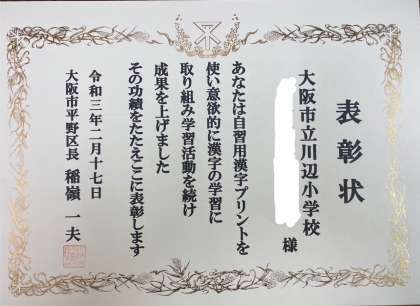 表彰状
大阪市立川辺小学校
様
あなたは自習用漢字プリントを
使い意欲的に漢字の学習に
取り組み学習活動を続け
成果を上げました
その功績をたたえここに表彰します
令和三年二月十七日
大阪市平野区長 稲嶺一夫